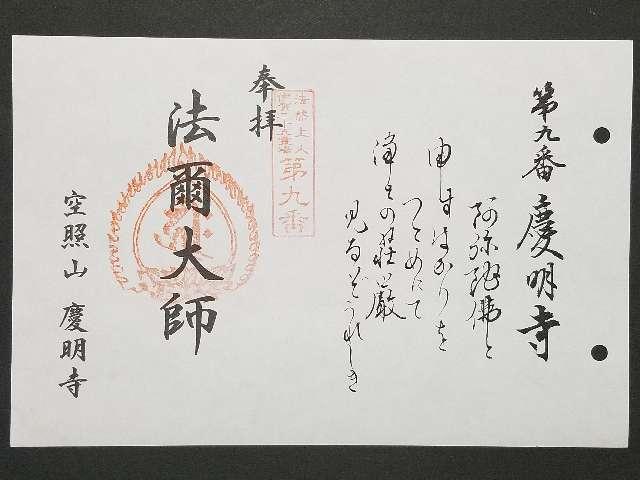 第九番 慶明寺
阿弥陀佛と
申すはかりを
つとめにて
浄土の荘厳
見るぞうれしき
奉拝
第九番
法爾大師
空照山 慶明寺